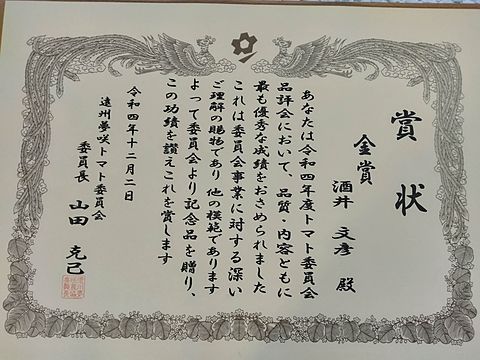 賞状
金賞
酒井 文彦 殿
あなたは令和四年度トマト委員会
品評会において、品質・内容ともに
最も優秀な成績をおさめられました
これは委員会事業に対する深い
ご理解の賜物であり 他の模範であります
よって委員会より記念品を贈り、
この功績を讃えこれを賞します
令和四年十二月二日
遠州夢咲トマト委員会
委員長 山田 克己